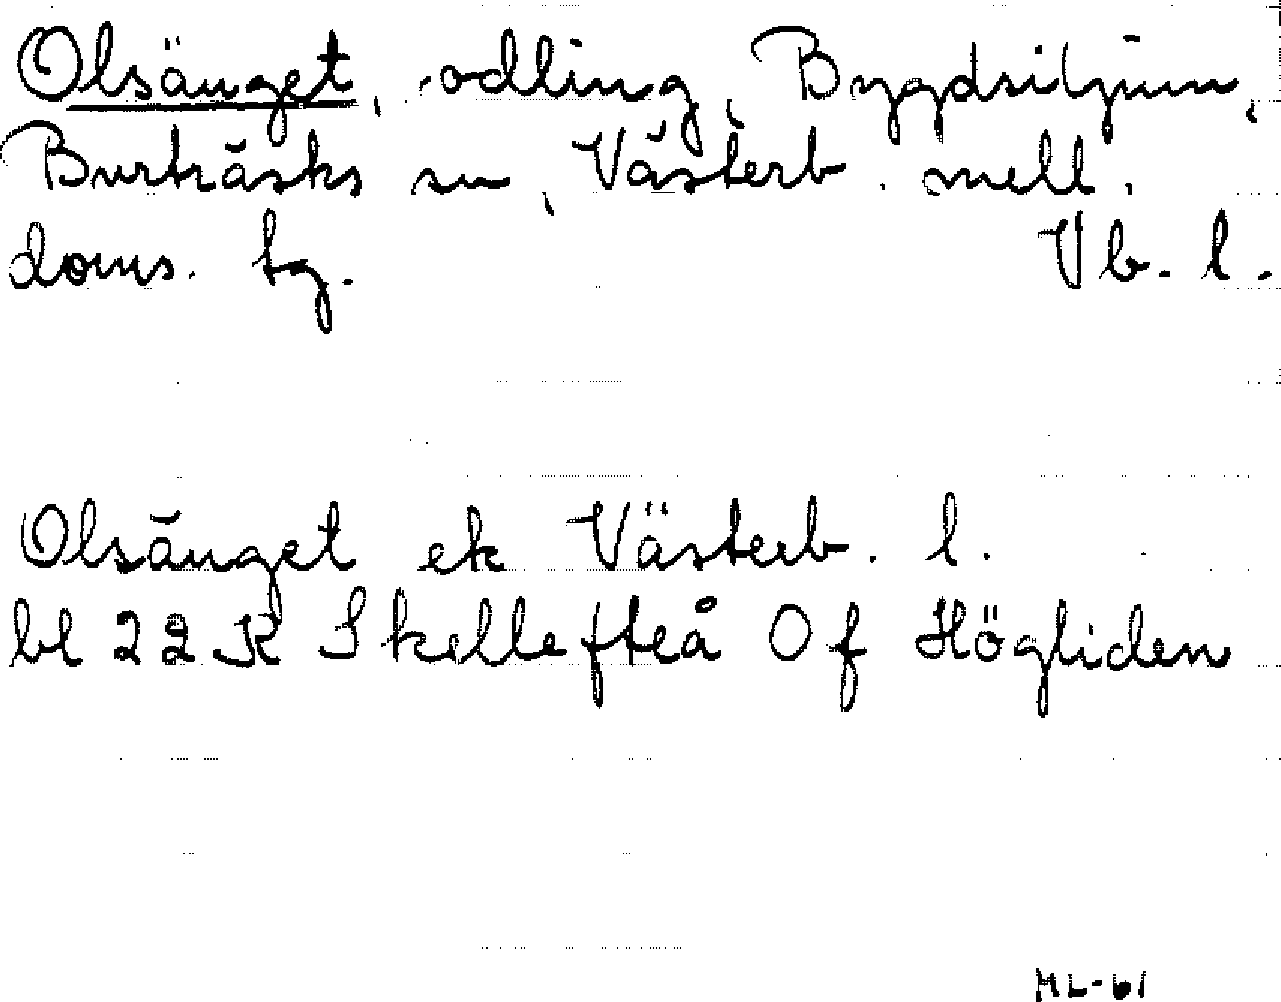 Olsänget, odling, Bygdsiljum,
Burträsks sn, Västerb. mell.
doms. tg. Vb. l.
Olsänget ek Västerb. l.
bl 22K Skellefteå Of Högliden
ML-61